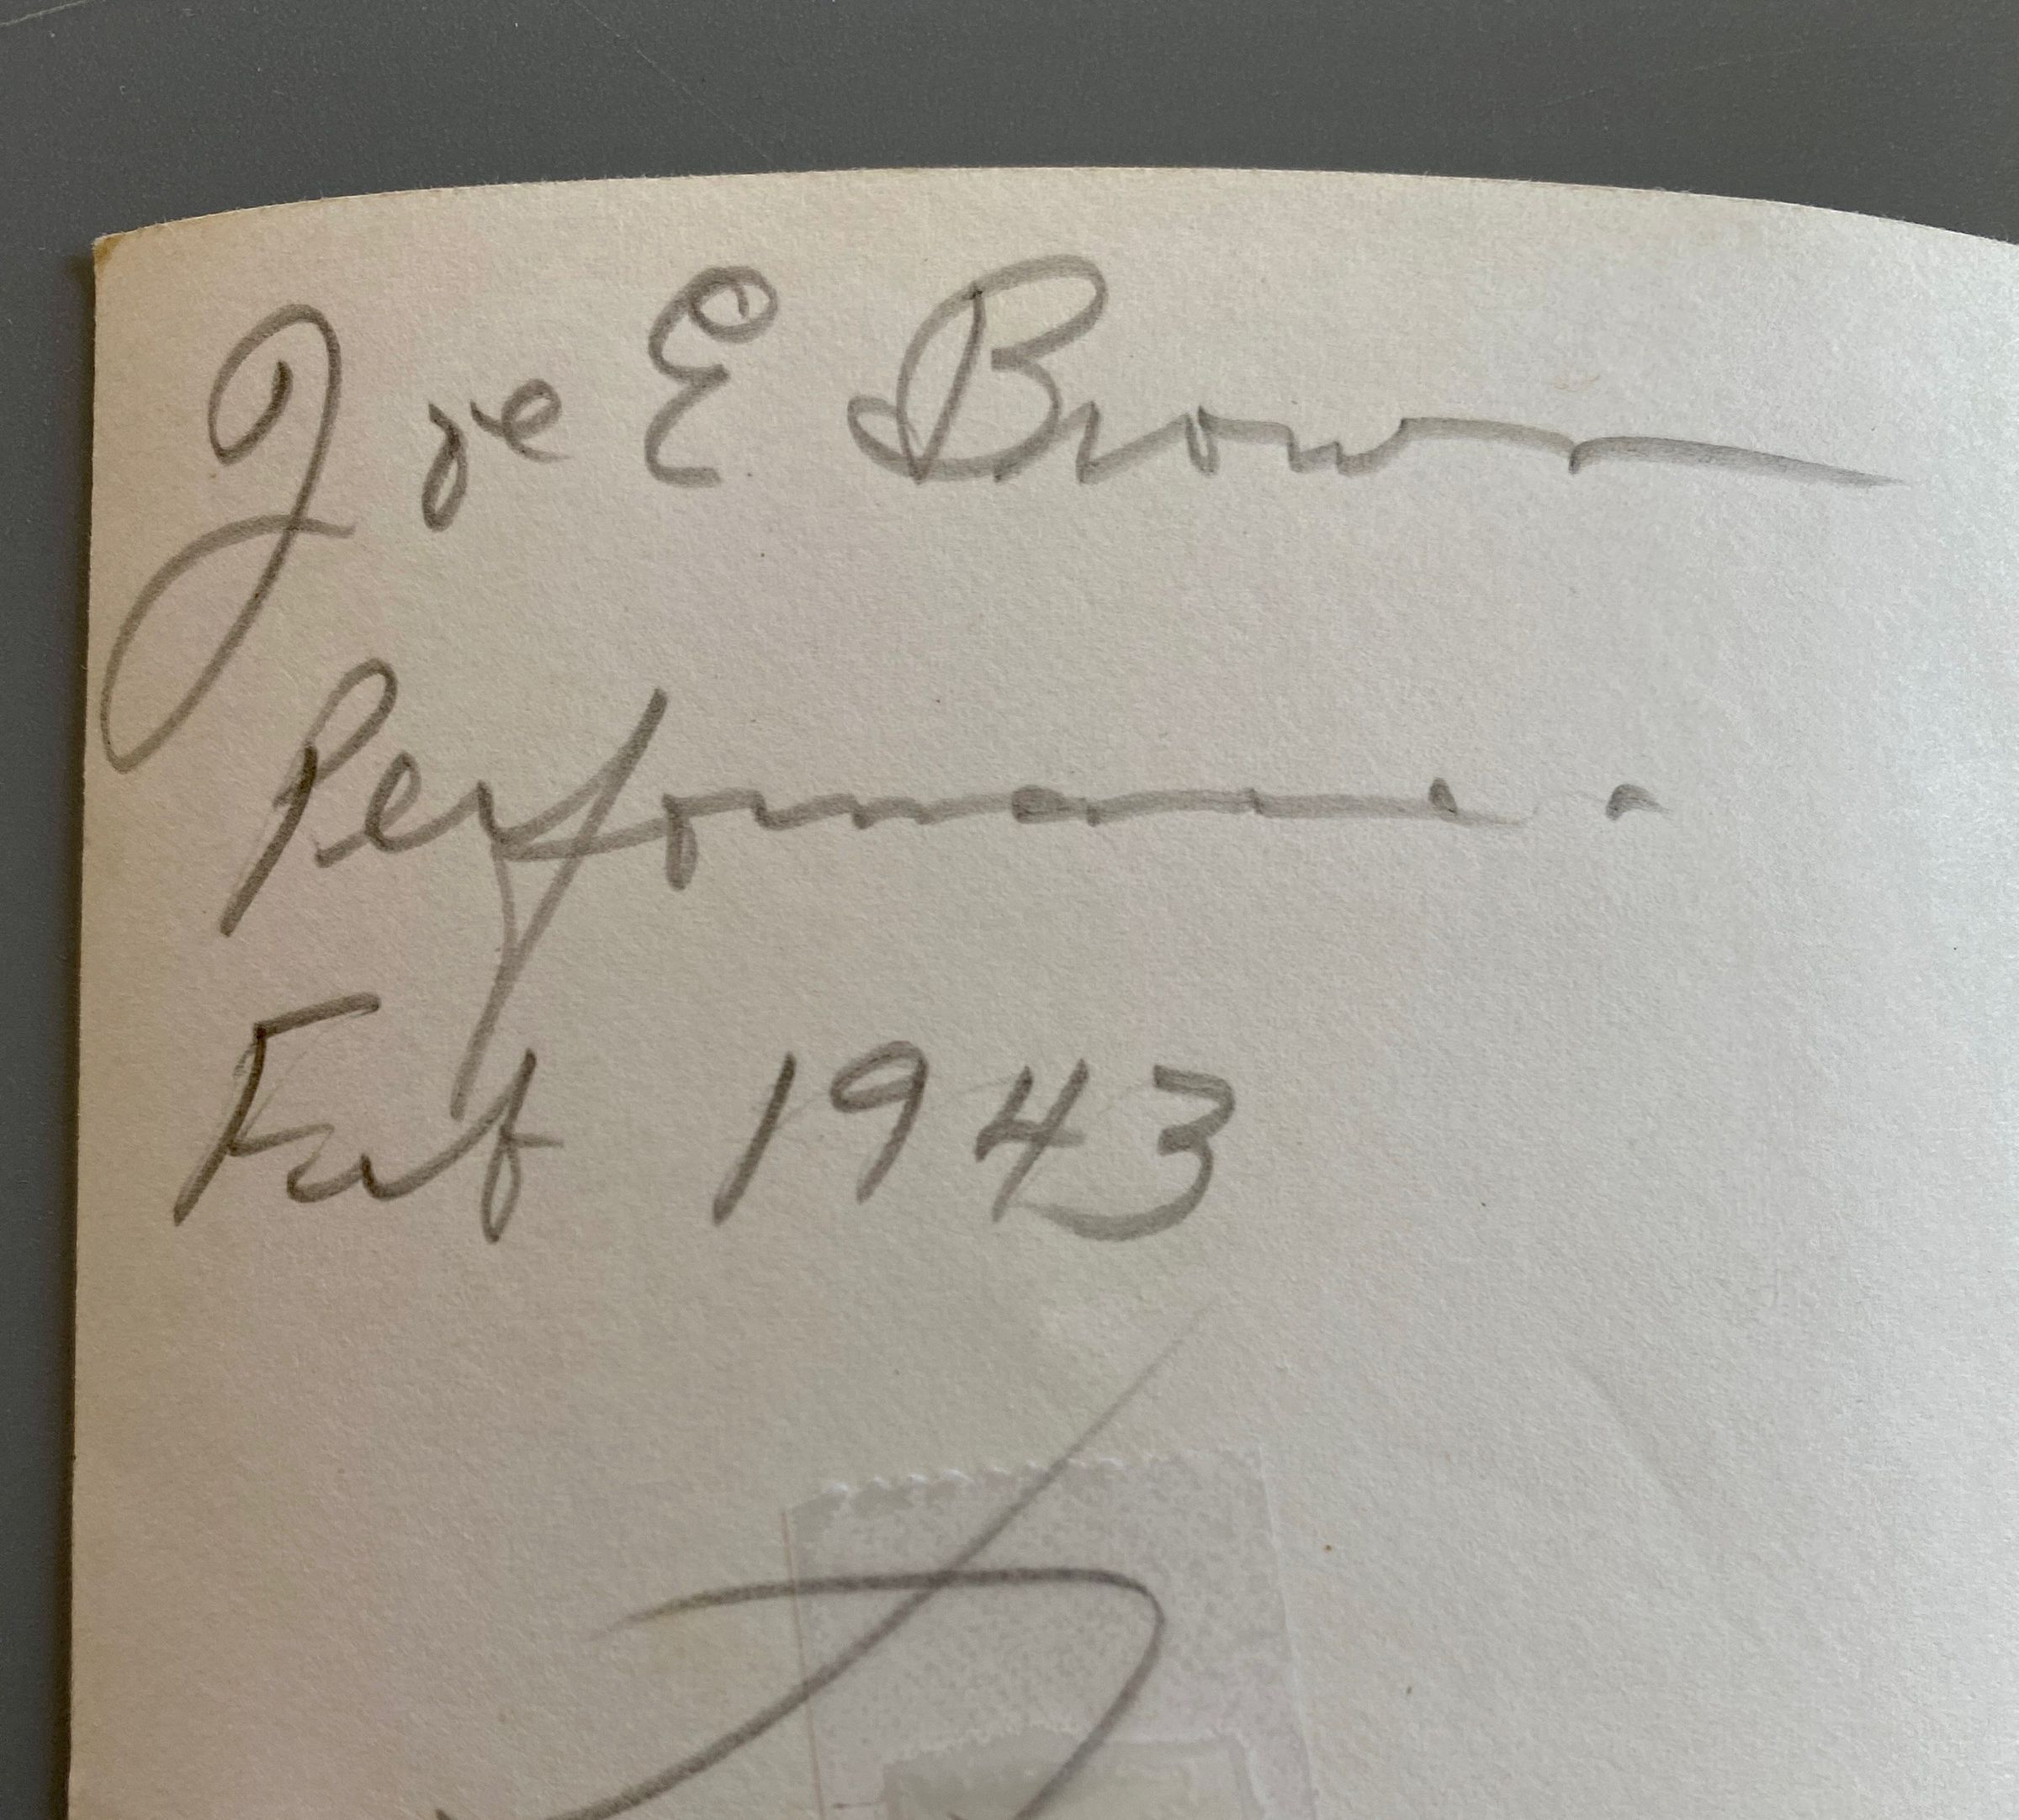 Joe E Brown
Performance.
Feb 1943